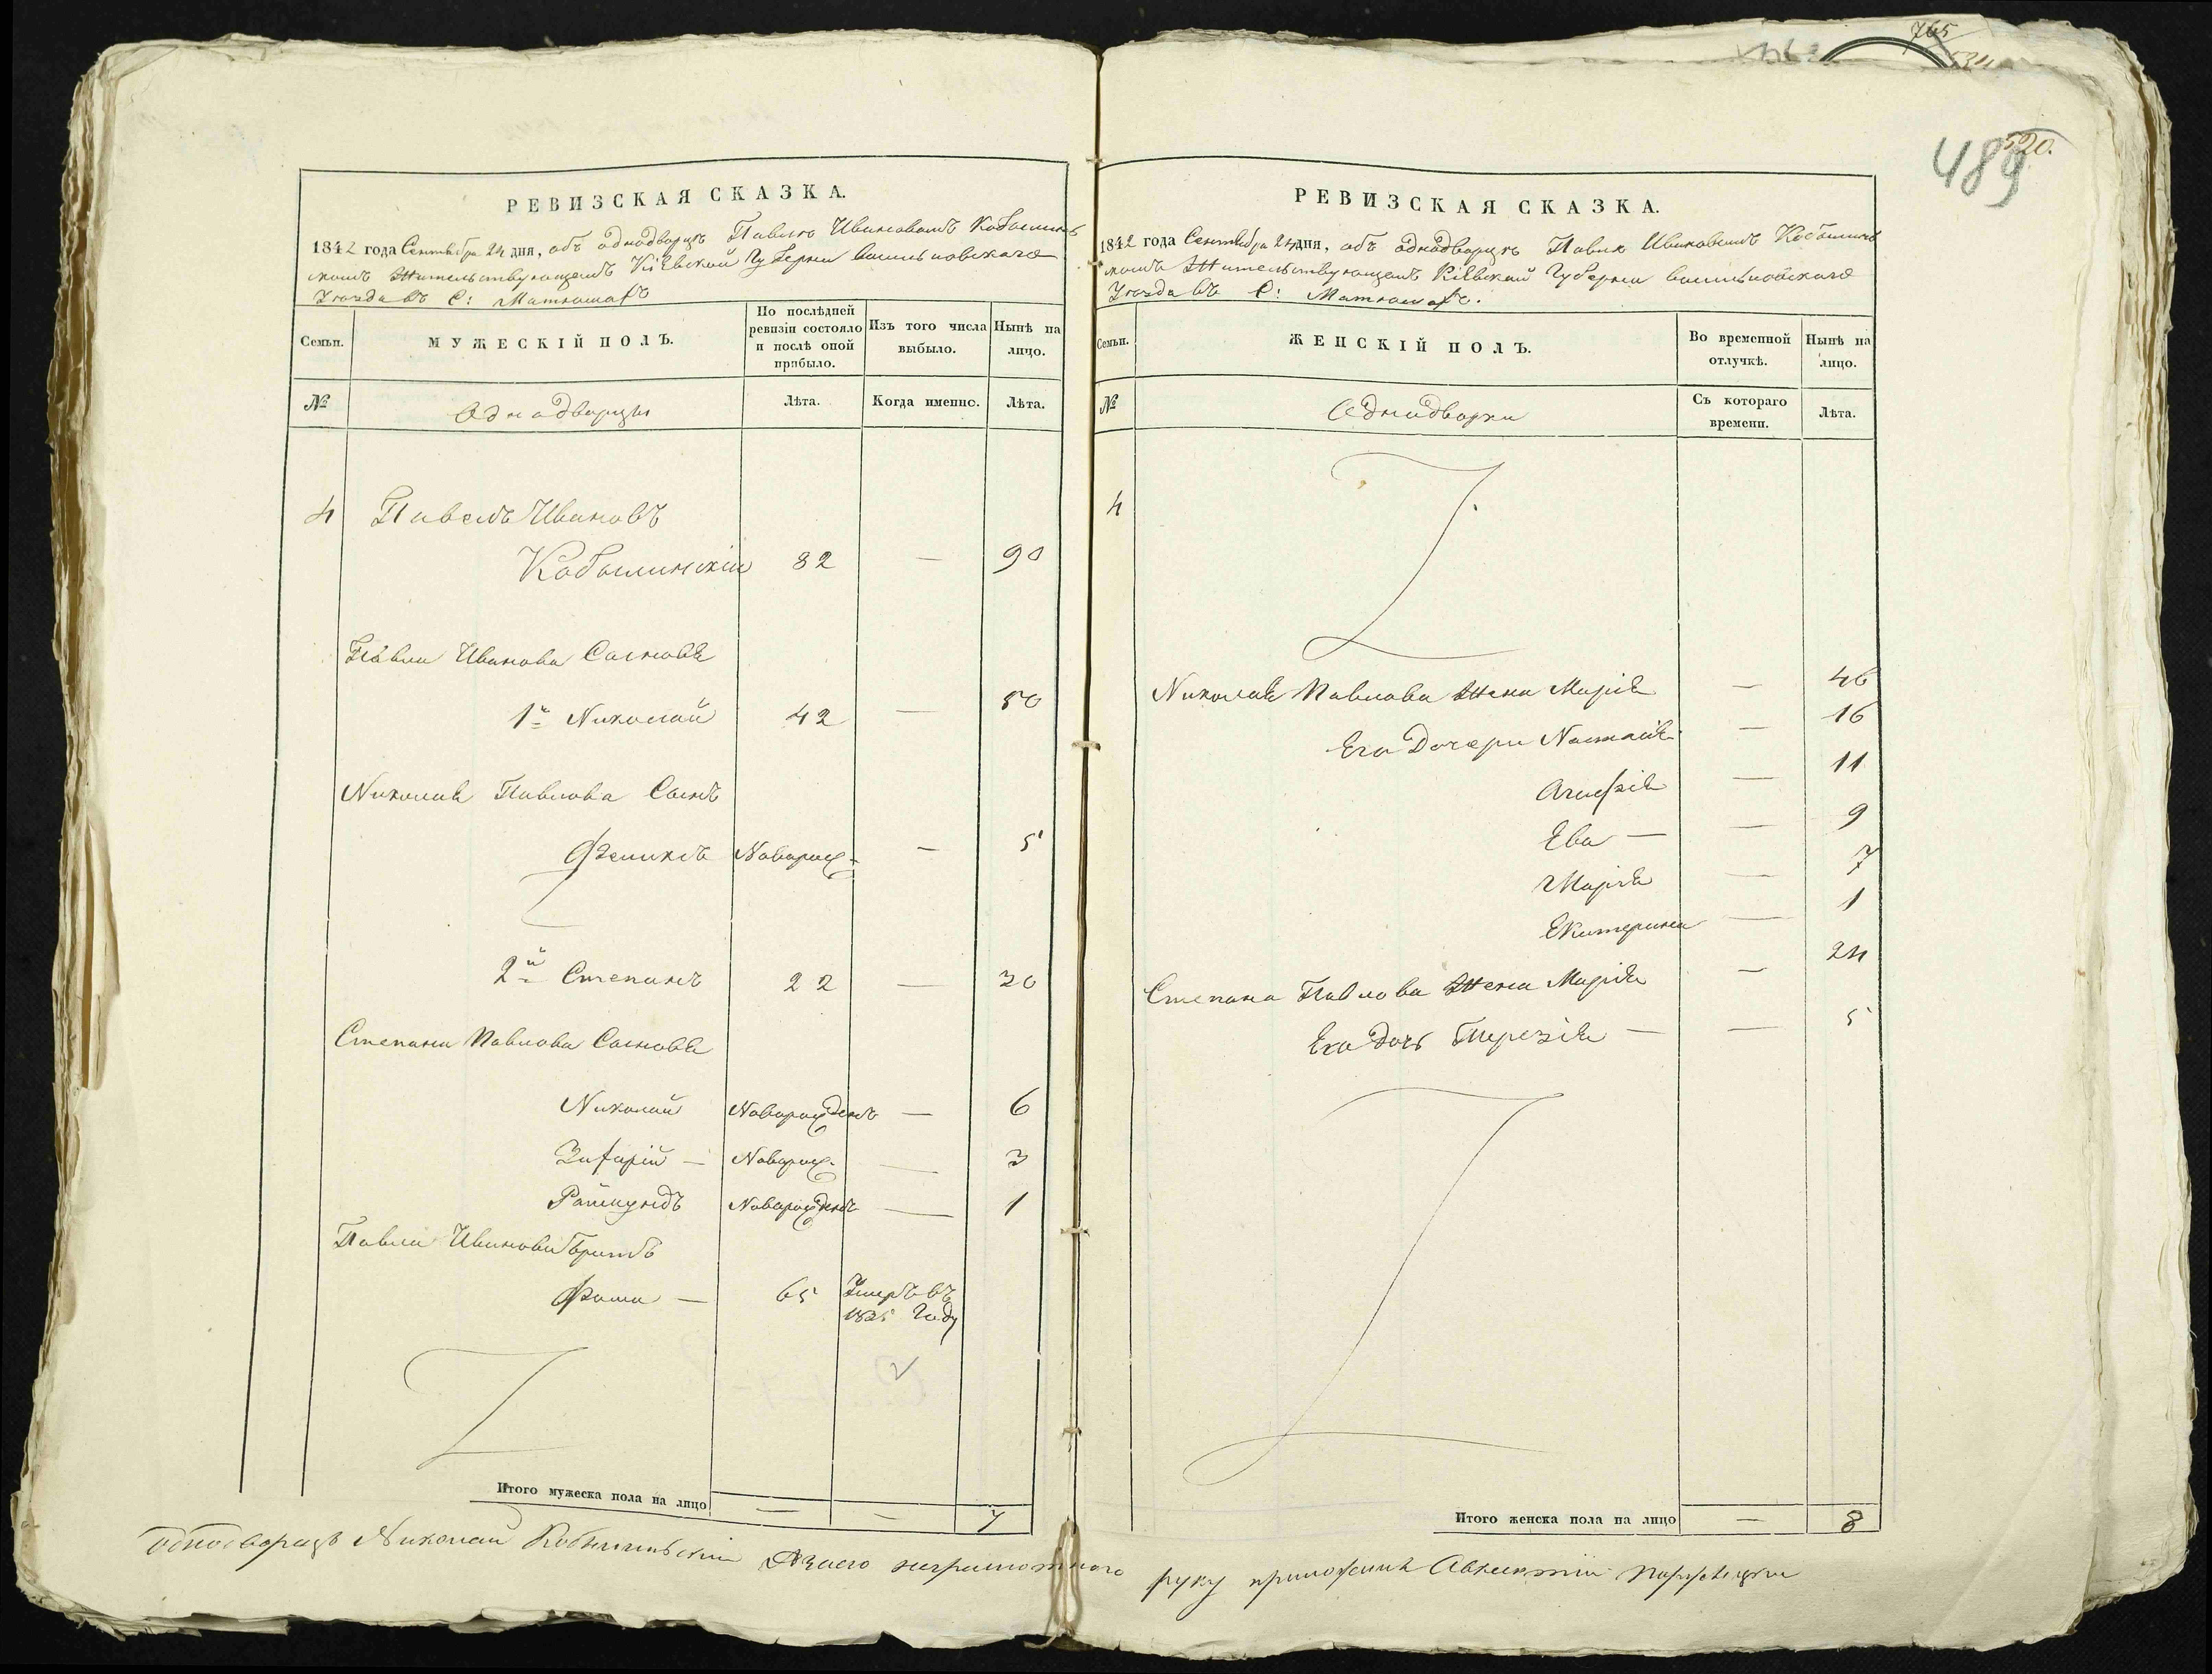 765
489
520.
РЕВИЗСКАЯ СКАЗКА.
1842 года Сентября 24 дня, объ однодворцѣ Павлѣ Ивановомъ Кобылинс
комъ Жительствующемъ Кіевской Губерніи Васильковскаго
Уѣзда въ С:
Семьи.
МУЖЕСКІЙ ПОЛЪ.
По послѣдней ревизіи состояло и послѣ оной прибыло.
Изъ того числа выбыло.
Нынѣ на лицо.
№
Однодворцы
Лѣта.
Когда именно.
Лѣта.
4 Павелъ Ивановъ
Кобылинскій 82 — 90
Павла Иванова Сыновья
1й Николай 42 — 50
Николая Павлова Сынъ
Феликсъ Новорож — 5
2й Степанъ 22 — 30
Степана Павлова Сыновья
Николай Новорожденъ — 6
Захарій — Новорож. — 3
Раймундъ Новорожденъ — 1
Павла Иванова братъ
Фома — 65 Умеръ въ
1835 Году
Итого мужеска пола на лицо — — 7
РЕВИЗСКАЯ СКАЗКА.
1842 года Сентября 24 дня, объ однодворцѣ Павлѣ Ивановомъ Кобылинс
комъ Жительствующемъ Кіевской Губерніи Васильковскаго
Уѣзда въ С:
Семьи.
ЖЕНСКІЙ ПОЛЪ.
Во временной отлучкѣ.
Нынѣ на лицо.
№
Однодворки
Съ котораго времени.
Лѣта.
4
Николая Павлова Жена Марія — 46
Его Дочери Настасія — 16
— 11
Ева — — 9
Марія — 7
Екатерина — 1
Степана Павлова Жена Марія — 24
Его Дочь Терезія — — 5
Итого женска пола на лицо — 8
однодворецъ Николай Кобылинскій А заего неграмотного руку приложилъ